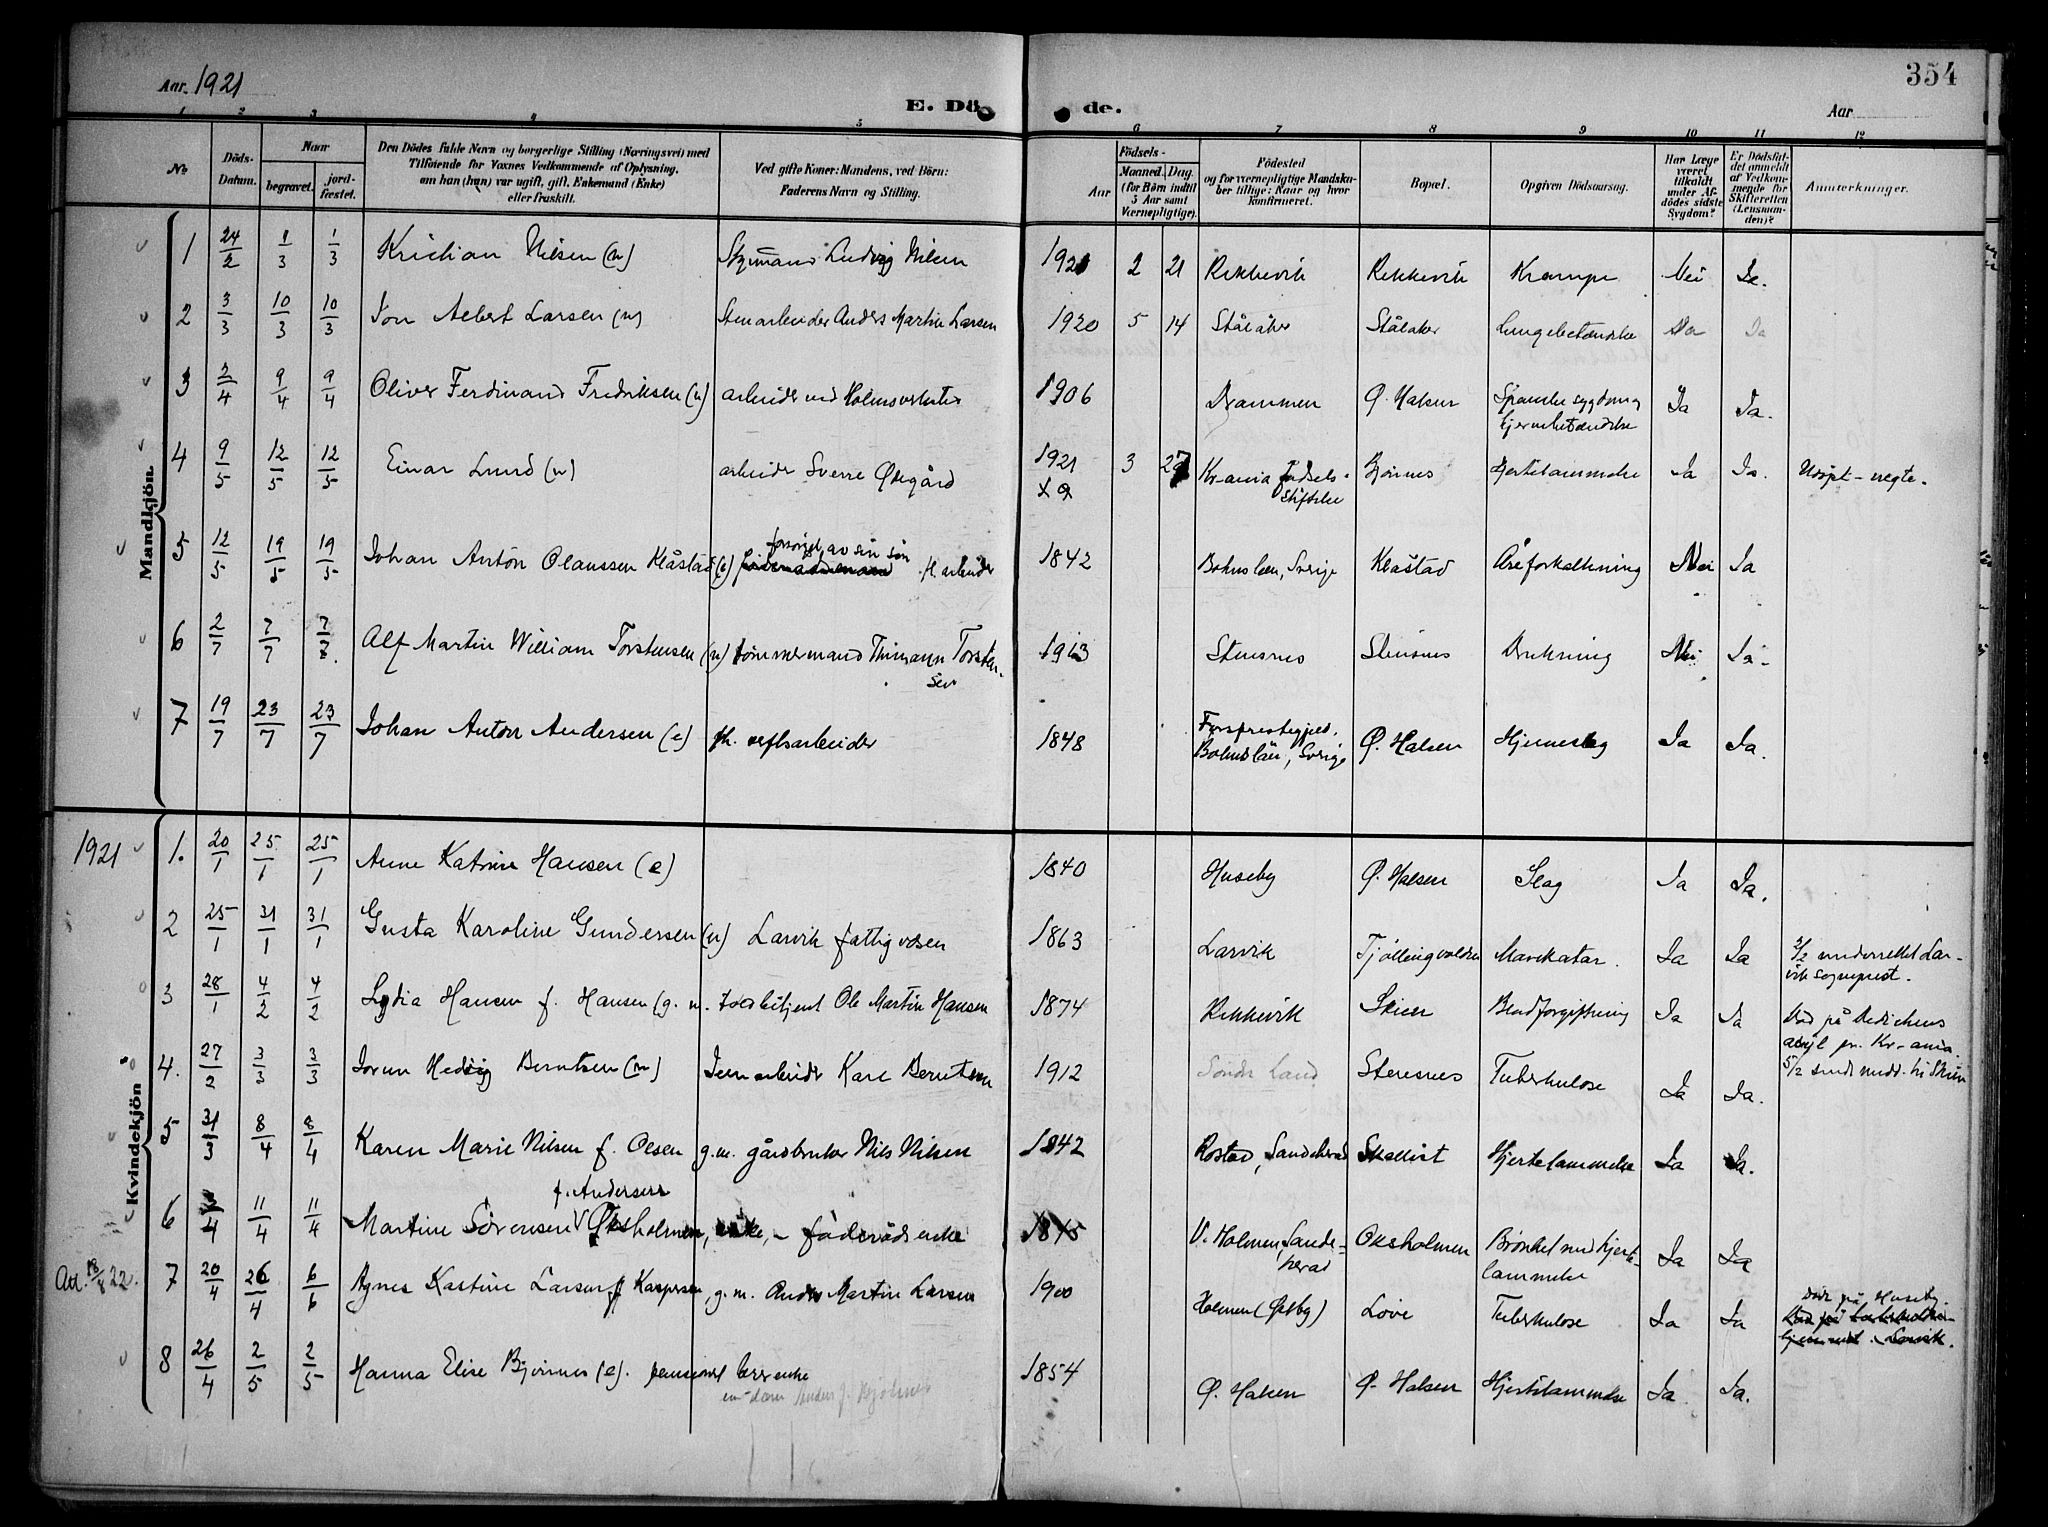 354
Aar. 1921
E. Dö de.
Aar
1 2 3 4 5 6 7 8 9 10 11 12
No
Döds-Datum.
Naar
begravet.
jord-fæstet.
Den Dödes fulde Navn og borgerlige Stilling (Næringsvei) med
Tilföiende for Voxnes Vedkommende af Oplysning,
om han (hun) var ugift, gift, Enkemand (Enke)
eller fraskilt.
Ved gifte Koner: Mandens, ved Börn:
Faderens Navn og Stilling.
Aar
Födsels-
Maaned. Dag.
(for Börn indtil
5 Aar samt
Værnepligtige).
Födested
og for værnepligtige Mandska-
ber tillige: Naar og hvor
konfirmeret.
Bopæl.
Opgiven Dödsaarsag.
Har Læge
været
tilkaldt
under Af-
dödes sidste
Sygdom?
Er Dödsfal-
det anmeldt
af Vedkom-
mende for
Skifteretten
(Lensman-
den)?
Anmærkninger.
Mandkjön
1 24/2 1/3 1/3 Kristian Nilsen (u) Styrmand Ludvig Nilsen 1921 2 21 Rekkevik Rekkevik Krampe Nei Ja.
2 3/3 10/3 10/3 Albert Larsen (u) Stenarbeider Anders Martin Larsen 1920 5 14 Ståláker Stålaker Lungebetændelse Ja Ja
3 2/4 9/4 9/4 Oliver Ferdinand Fredriksen (u) arbeider ved Holmsverket 1906 Drammen Ø. Halsen Spanske sygdom og
hjernebetændelse Ja Ja.
4 9/5 12/5 12/5 Einar Lund (u) arbeider Sverre Ødegård 1921 3 27 Kr-ania fødsels-
stiftelse Bjönnes Hjertelammelse Ja Ja. Udöpt - uegte.
5 12/5 19/5 19/5 Johan Anton Olaussen Klåstad (e) forsörget av sin sön fh. arbeider 1842 Bohuslen, Sverige Klåstad Åreforkalkning Nei Ja
6 2/7 7/7 7/7. Alf Martin William Torstensen (u) tömmermand Thimann Torsten-
sen 1913 Stensnes Stensnes Drukning Nei Ja-
7 19/7 23/7 23/7 Johan Anton Andersen (e) fh. verftsarbeider 1848
Bohuslän, Sverige Ø. Halsen Hjerneslag Ja Ja.
1921
Kvindekjön
1. 20/1 25/1 25/1 Anne Katrine Hansen (e) 1840 Huseby Ø. Halsen Slag Ja Ja.
2 25/1 31/1 31/1 Gusta Karoline Gundersen (u) Larvik fattigvæsen 1863 Larvik Tjöllingvolden Mavekatar. Ja Ja 3/2 underrettet Lar-
vik sogneprest.
3 28/1 4/2 4/2 Lydia Hansen f. Hansen (g. m. toldbetjent Ole Martin Hansen 1874 Rekkevik Skien Blodforgiftning Ja Ja Död på Dedichens
asyl pr. Kr-ania.
5/2 sendt medd. til Skien
4. 27/2 3/3 3/3 Jorun Hedvig Berntsen (u) Jernarbeider Karl Berntsen 1912 Söndr Land Stensnes Tuberkulose Ja Ja.
5 31/3 8/4 8/4 Karen Marie Nilsen f. Olsen g.m. gårdbruker Nils Nilsen 1842 Rostad, Sandeherad Skallist Hjertelammelse Ja Ja.
f. Andersen
6 3/4 11/4 11/4 Martine Sörensen V Oksholmen, enke, - föderådsenke 1845 V. Holmen, Sande-
herad Oksholmen Brönkit med hjerte-
lammelse Ja Ja
Att. 18/8 22. 7 20/4 26/4 6/6 Agnes Kastine Larsen f Kaspersen, g.m. Anders Martin Larsen 1900 Holmen (Østby) Löve Tuberkulose Ja Ja Död på Huseby
8 26/4 2/5 2/5 Hanna Elise Bjönnes (e). pensionert lærerenke 1854 Ø. Halsen Ø. Halsen Hjertelammelse Ja. Ja.